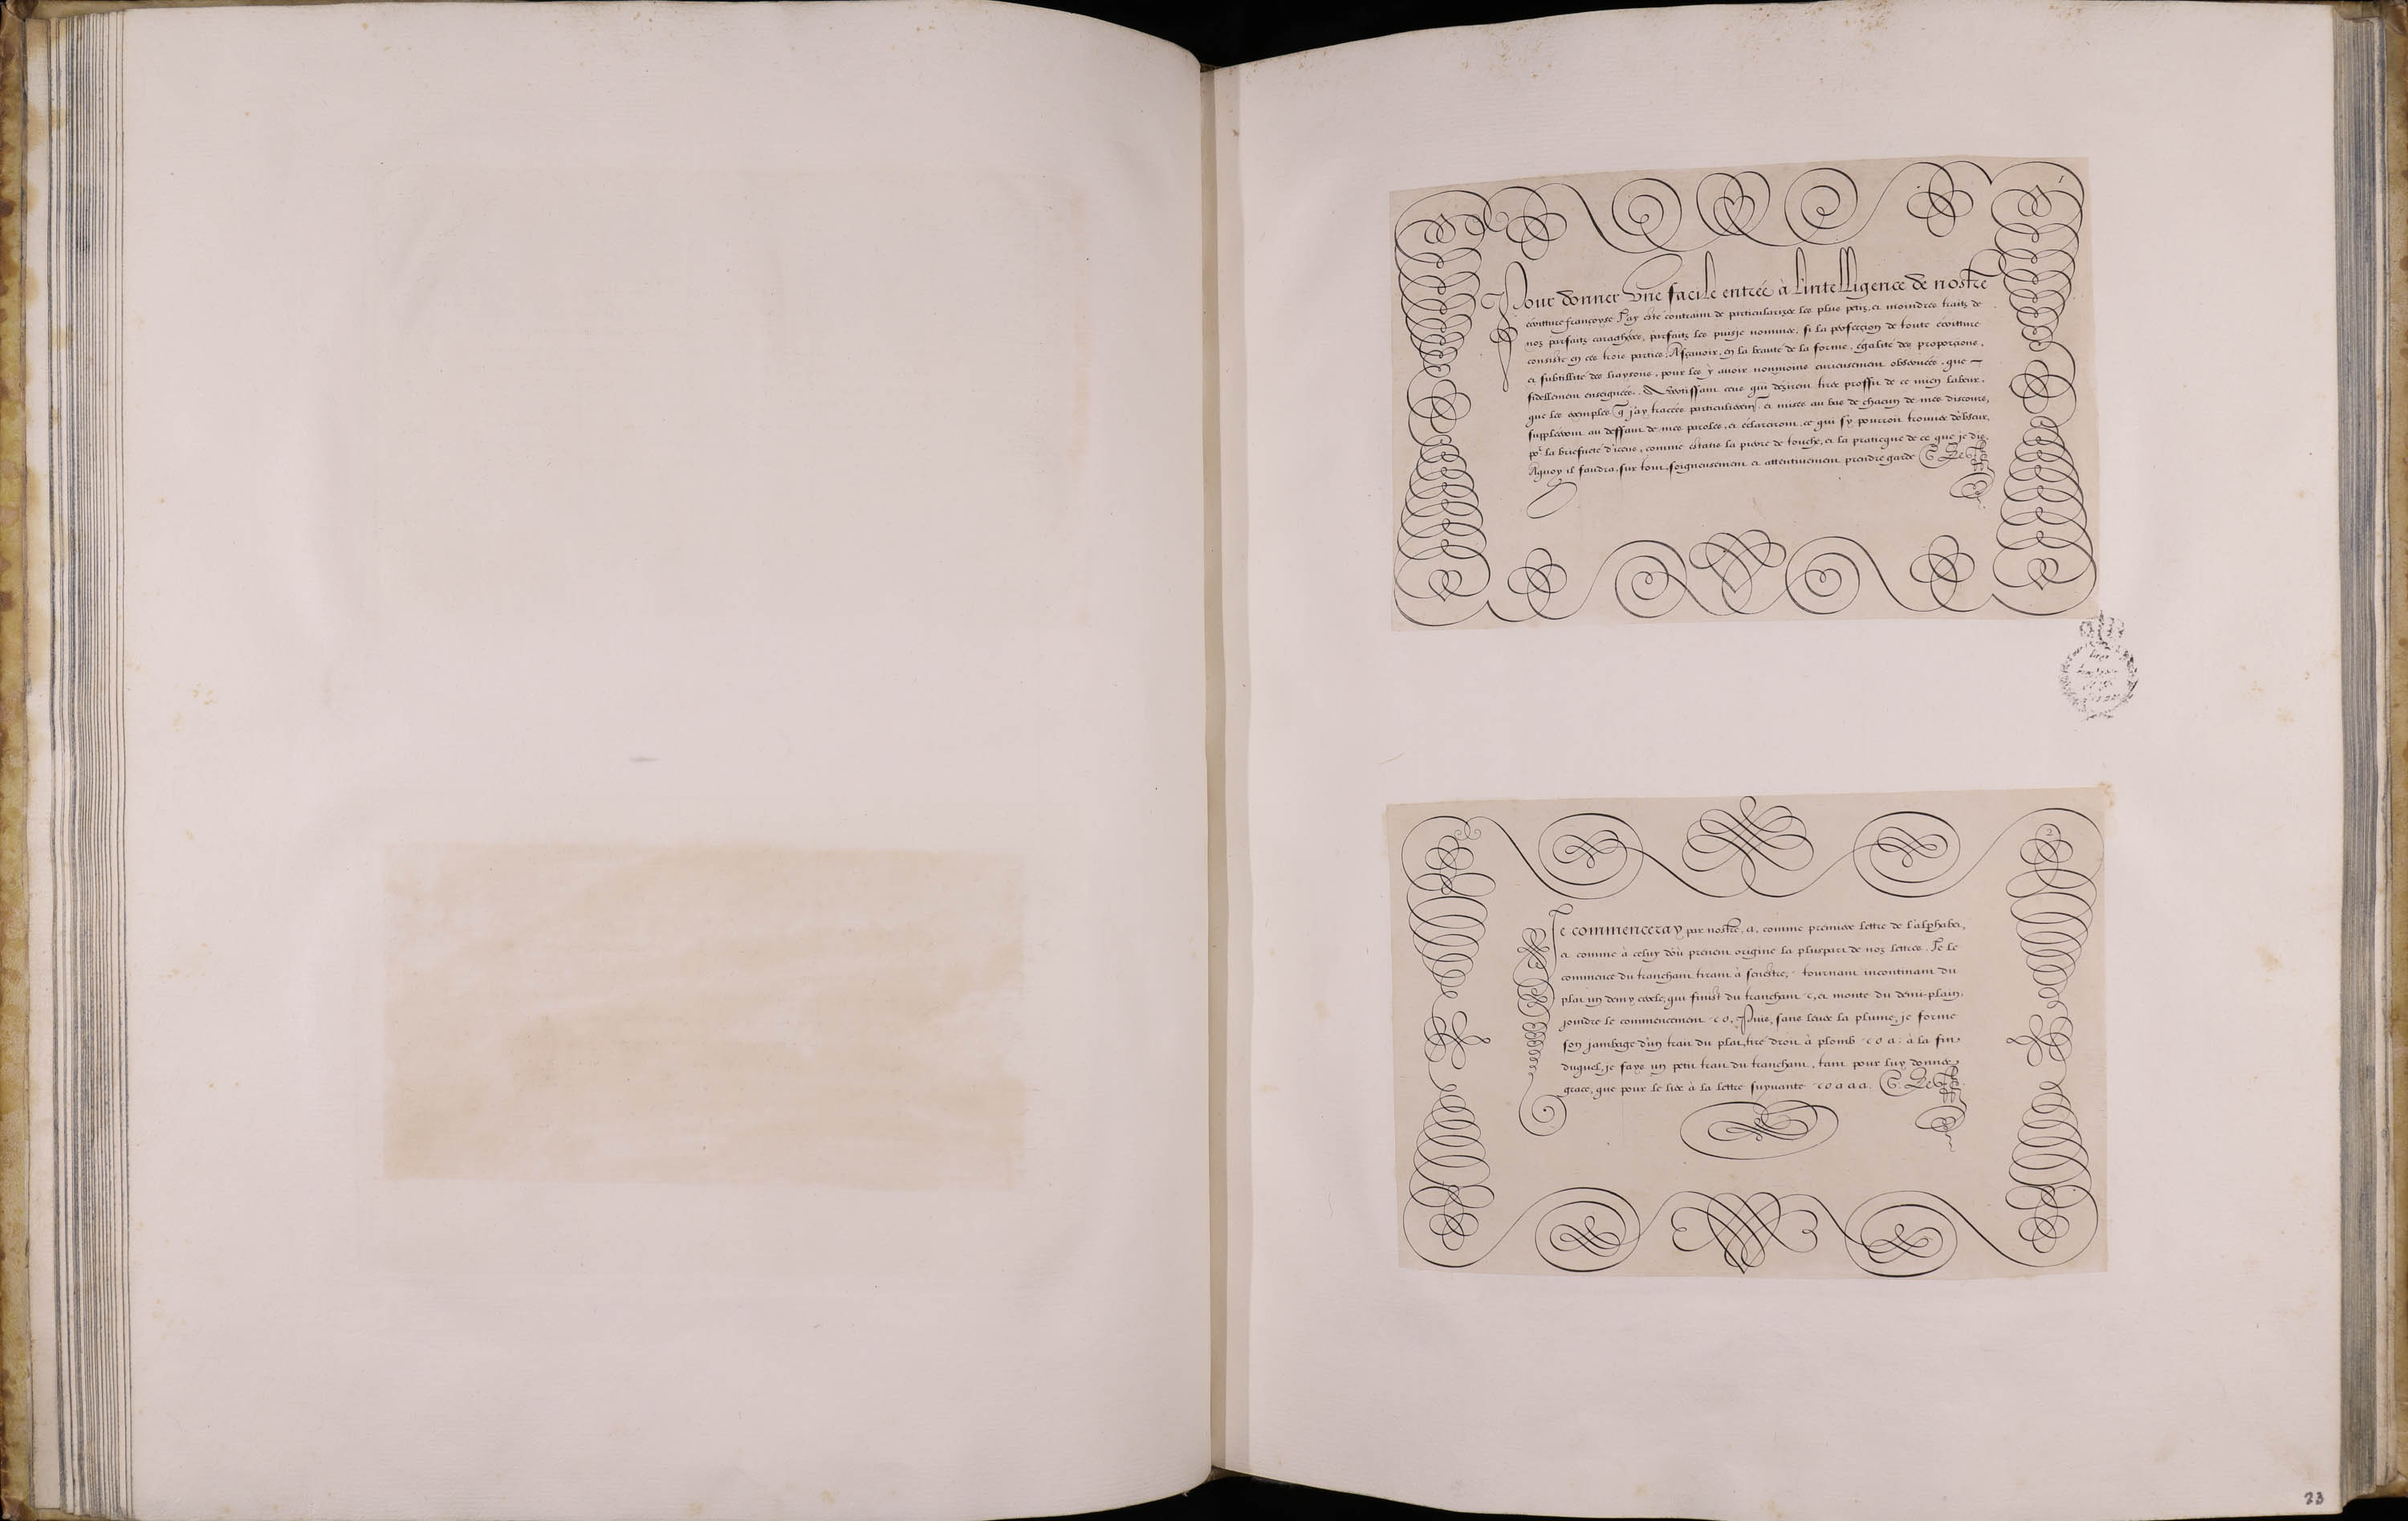 1
Pour donner une facile entrée à l'intelligence de nostre
écritture françoyse J'ay esté contraint de particularizer les plus petiz, et moindres traitz de
noz parfaitz caracthéres, parfaitz les puisje nommer, si la perfection de toute écritture
consiste en ces trois parties. Asçavoir, en la beauté de la forme, égalité des proporçions,
et subtillité des liaysons, pour les y avoir nonmoins curieusement observées, que
fidellement enseignées. Avertissant ceus qui dezirent tirer proffit de ce mien labeur,
que les exemples q̃ j'ay tracées particulierem̃t et mises au bas de chacun de mes discours,
suppléeront au deffaut de mes paroles, et éclarciront, ce qui s'y pourroit trouver d'obscur,
po.r la briefueté d'iceus, comme estans la pierre de touche, et la praticque de ce que je dis.
Aquoy il faudra, sur tout, soigneusement et attentivement prendre garde G.
2
Je commenceray par nostre, a, comme premiere lettre de l'alphabet,
et comme à celuy d'où prenent origine la pluspart de noz lettres. Je le
commence du tranchant tirant à senestre, tournant incontinant du
plat un demy cercle, qui finist du tranchant c, et monte du demi-plain,
joindre le commencement c o. Puis, sans lever la plume, je forme
son jambage d'un trait du plat, tiré droit à plomb c o a: à la fin
duquel, je fays un petit trait du tranchant, tant pour luy donner
grace, que pour le lier à la lettre suyuante c o a a a. G.
23